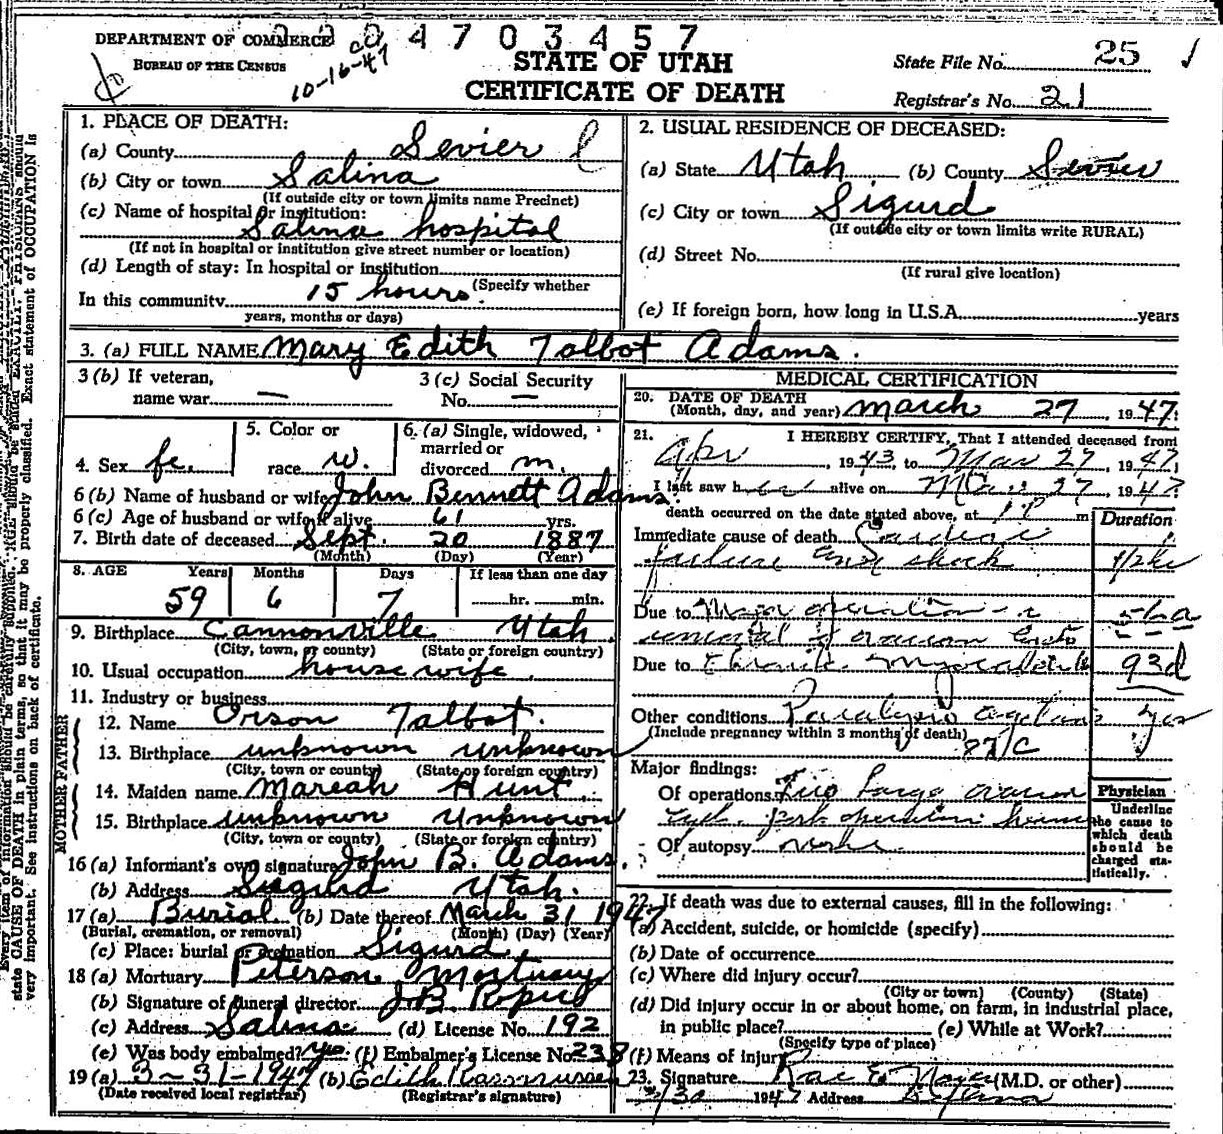 DEPARTMENT OF COMMERCE
BUREAU OF THE CENSUS
10-16-47
4703457
STATE OF UTAH
CERTIFICATE OF DEATH
State File No. 25
Registrar's No. 21
1. PLACE OF DEATH:
(a) County Sevier
(b) City or town Salina
(If outside city or town limits name Precinct)
(c) Name of hospital or institution:
Salina hospital
(If not in hospital or institution give street number or location)
(d) Length of stay: In hospital or institution
(Specify whether
In this community 15 hours.
years, months or days)
2. USUAL RESIDENCE OF DECEASED:
(a) State Utah (b) County Sevier
(c) City or town Sigurd
(If outside city or town limits write RURAL)
(d) Street No.
(If rural give location)
(e) If foreign born, how long in U.S.A. years
3. (a) FULL NAME Mary Edith Talbot Adams.
3 (b) If veteran, name war —
3 (c) Social Security No. —
4. Sex fe.
5. Color or race w.
6. (a) Single, widowed, married or divorced m.
6 (b) Name of husband or wife John Bennett Adams.
6 (c) Age of husband or wife if alive 61 yrs.
7. Birth date of deceased Sept. 20 1887
(Month) (Day) (Year)
8. AGE Years Months Days If less than one day
59 6 7 hr. min.
9. Birthplace Cannonville Utah
(City, town, or county) (State or foreign country)
10. Usual occupation housewife
11. Industry or business
FATHER
12. Name Orson Talbot.
13. Birthplace unknown unknown
(City, town or county) (State or foreign country)
MOTHER
14. Maiden name Mareah Hunt.
15. Birthplace unknown Unknown
(City, town or county) (State or foreign country)
16 (a) Informant's own signature John B. Adams.
(b) Address Sigurd Utah.
17 (a) Burial (b) Date thereof March 31 1947
(Burial, cremation, or removal) (Month) (Day) (Year)
(c) Place: burial or cremation Sigurd
18 (a) Mortuary Peterson Mortuary
(b) Signature of funeral director J.B.
(c) Address Salina (d) License No. 192
(e) Was body embalmed? yes. (f) Embalmer's License No. 238
19 (a) 3-31-1947 (b) Edith Rasmussen
(Date received local registrar) (Registrar's signature)
MEDICAL CERTIFICATION
20. DATE OF DEATH
(Month, day, and year) March 27, 1947.
21. I HEREBY CERTIFY, That I attended deceased from
Apr, 1943, to Mar 27, 1947,
I last saw her alive on Mar 27, 1947
death occurred on the date stated above, at 1 P m
Duration
Immediate cause of death Cardiac
failure and shock
Due to Major operation
removal of ovarian cysts
Due to Chronic Myocarditis 93d
Other conditions Paralysis agitans yrs
(Include pregnancy within 3 months of death)
87/C
Major findings:
Of operations Two Large ovarian
Of autopsy
Physician
Underline the cause to which death should be charged statistically.
22. If death was due to external causes, fill in the following:
(a) Accident, suicide, or homicide (specify)
(b) Date of occurrence
(c) Where did injury occur?
(City or town) (County) (State)
(d) Did injury occur in or about home, on farm, in industrial place,
in public place? (e) While at Work?
(Specify type of place)
(f) Means of injury
23. Signature Rae E. (M.D. or other)
3/30 1947 Address Salina
state CAUSE OF DEATH in plain terms, so that it may be properly classified. Exact statement of OCCUPATION is
very important. See instructions on back of certificate.